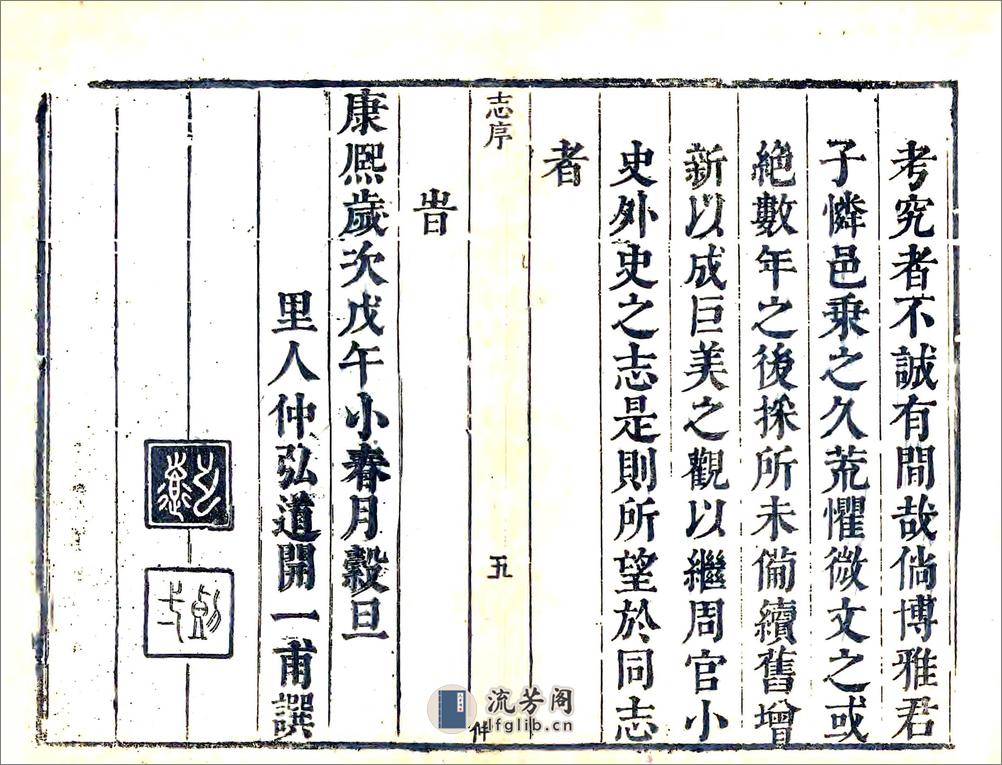 考究者不誠有間哉倘博雅君
子憐邑乗之久荒懼微文之或
絶數年之後採所未備續舊增
新以成巨美之觀以繼周官小
史外史之志是則所望於同志
者
志序
五
件
旹
康熈歲次戊午小春月穀旦
里人仲弘道開一甫譔
流芳阁
lfglib.cn